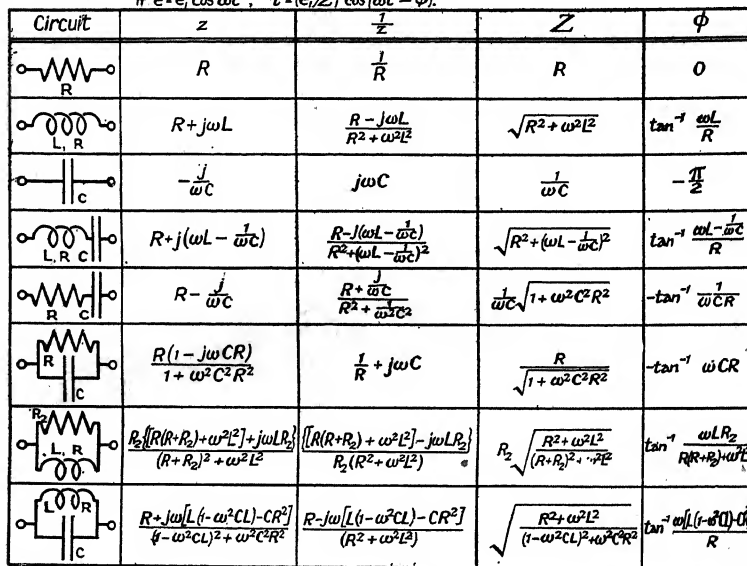 If e=e₁ cos ωt , i=(e₁/Z) cos(ωt − φ).
Circuit z 1/z Z φ
R R 1/R R 0
L, R R+jωL (R−jωL)/(R²+ω²L²) √(R²+ω²L²) tan⁻¹ ωL/R
C −j/ωC jωC 1/ωC −π/2
L, R C R+j(ωL−1/ωC) (R−j(ωL−1/ωC))/(R²+(ωL−1/ωC)²) √(R²+(ωL−1/ωC)²) tan⁻¹ (ωL−1/ωC)/R
R C R−j/ωC (R+j/ωC)/(R²+1/ω²C²) 1/ωC √(1+ω²C²R²) −tan⁻¹ 1/ωCR
R C R(1−jωCR)/(1+ω²C²R²) 1/R+jωC R/√(1+ω²C²R²) −tan⁻¹ ωCR
R₂ L, R R₂{[R(R+R₂)+ω²L²]+jωLR₂}/((R+R₂)²+ω²L²) {[R(R+R₂)+ω²L²]−jωLR₂}/(R₂(R²+ω²L²)) R₂√((R²+ω²L²)/((R+R₂)²+ω²L²)) tan⁻¹ ωLR₂/(R(R+R₂)+ω²L²)
L R C (R+jω[L(1−ω²CL)−CR²])/((1−ω²CL)²+ω²C²R²) (R−jω[L(1−ω²CL)−CR²])/(R²+ω²L²) √((R²+ω²L²)/((1−ω²CL)²+ω²C²R²)) tan⁻¹ ω[L(1−ω²CL)−CR²]/R